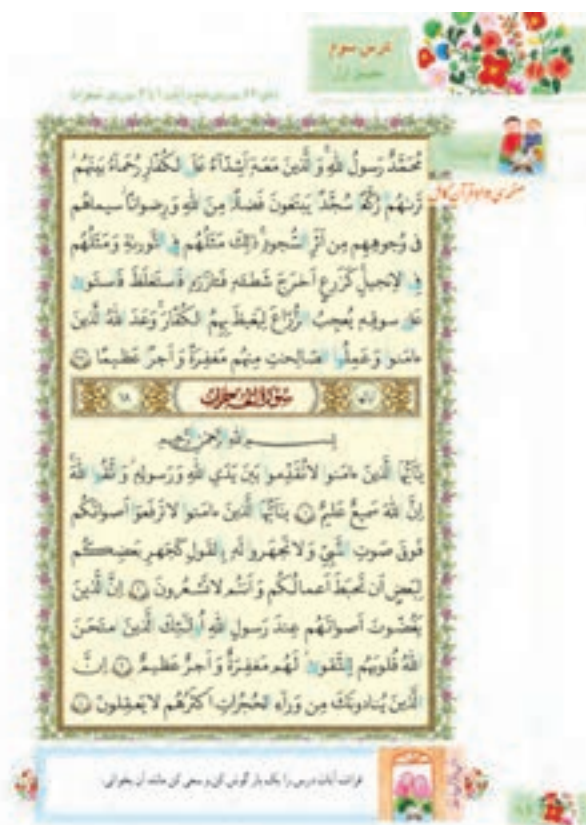 درس سوم
جلسه‌ی اول
مُحَمَّدٌ رَسولُ اللهِ وَ الَّذينَ مَعَهٗ اَشِدّاءُ عَلَى الكُفّارِ رُحَماءُ بَينَهُم
تَرىٰهُم رُكَّعًا سُجَّدًا يَبتَغونَ فَضلًا مِنَ اللهِ وَ رِضوانًا سيماهُم
فى وُجوهِهِم مِن اَثَرِ السُّجودِ ذٰلِكَ مَثَلُهُم فِى التَّورىٰةِ وَ مَثَلُهُم
فِى الاِنجيلِ كَزَرعٍ اَخرَجَ شَطـَٔهٗ فَـٔازَرَهٗ فَاستَغلَظَ فَاستَوىٰ
عَلىٰ سوقِهٖ يُعجِبُ الزُّرّاعَ لِيَغيظَ بِهِمُ الكُفّارَ وَعَدَ اللهُ الَّذينَ
ءامَنوا وَ عَمِلُوا الصّالِحٰتِ مِنهُم مَغفِرَةً وَ اَجرًا عَظيمًا
سورة الحجرات ١٨
بِسمِ اللهِ الرَّحمٰنِ الرَّحيمِ
يٰٓاَيُّهَا الَّذينَ ءامَنوا لا تُقَدِّموا بَينَ يَدَىِ اللهِ وَ رَسولِهٖ وَ اتَّقُوا اللهَ
اِنَّ اللهَ سَميعٌ عَليمٌ ١ يٰٓاَيُّهَا الَّذينَ ءامَنوا لا تَرفَعوا اَصواتَكُم
فَوقَ صَوتِ النَّبِىِّ وَ لا تَجهَروا لَهٗ بِالقَولِ كَجَهرِ بَعضِكُم
لِبَعضٍ اَن تَحبَطَ اَعمالُكُم وَ اَنتُم لا تَشعُرونَ ٢ اِنَّ الَّذينَ
يَغُضّونَ اَصواتَهُم عِندَ رَسولِ اللهِ اُولٰئِكَ الَّذينَ امتَحَنَ
اللهُ قُلوبَهُم لِلتَّقوىٰ لَهُم مَغفِرَةٌ وَ اَجرٌ عَظيمٌ ٣ اِنَّ
الَّذينَ يُنادونَكَ مِن وَراءِ الحُجُراتِ اَكثَرُهُم لا يَعقِلونَ ٤
قرائت آیات درس را یک بار گوش کن و سعی کن مانند آن بخوانی.